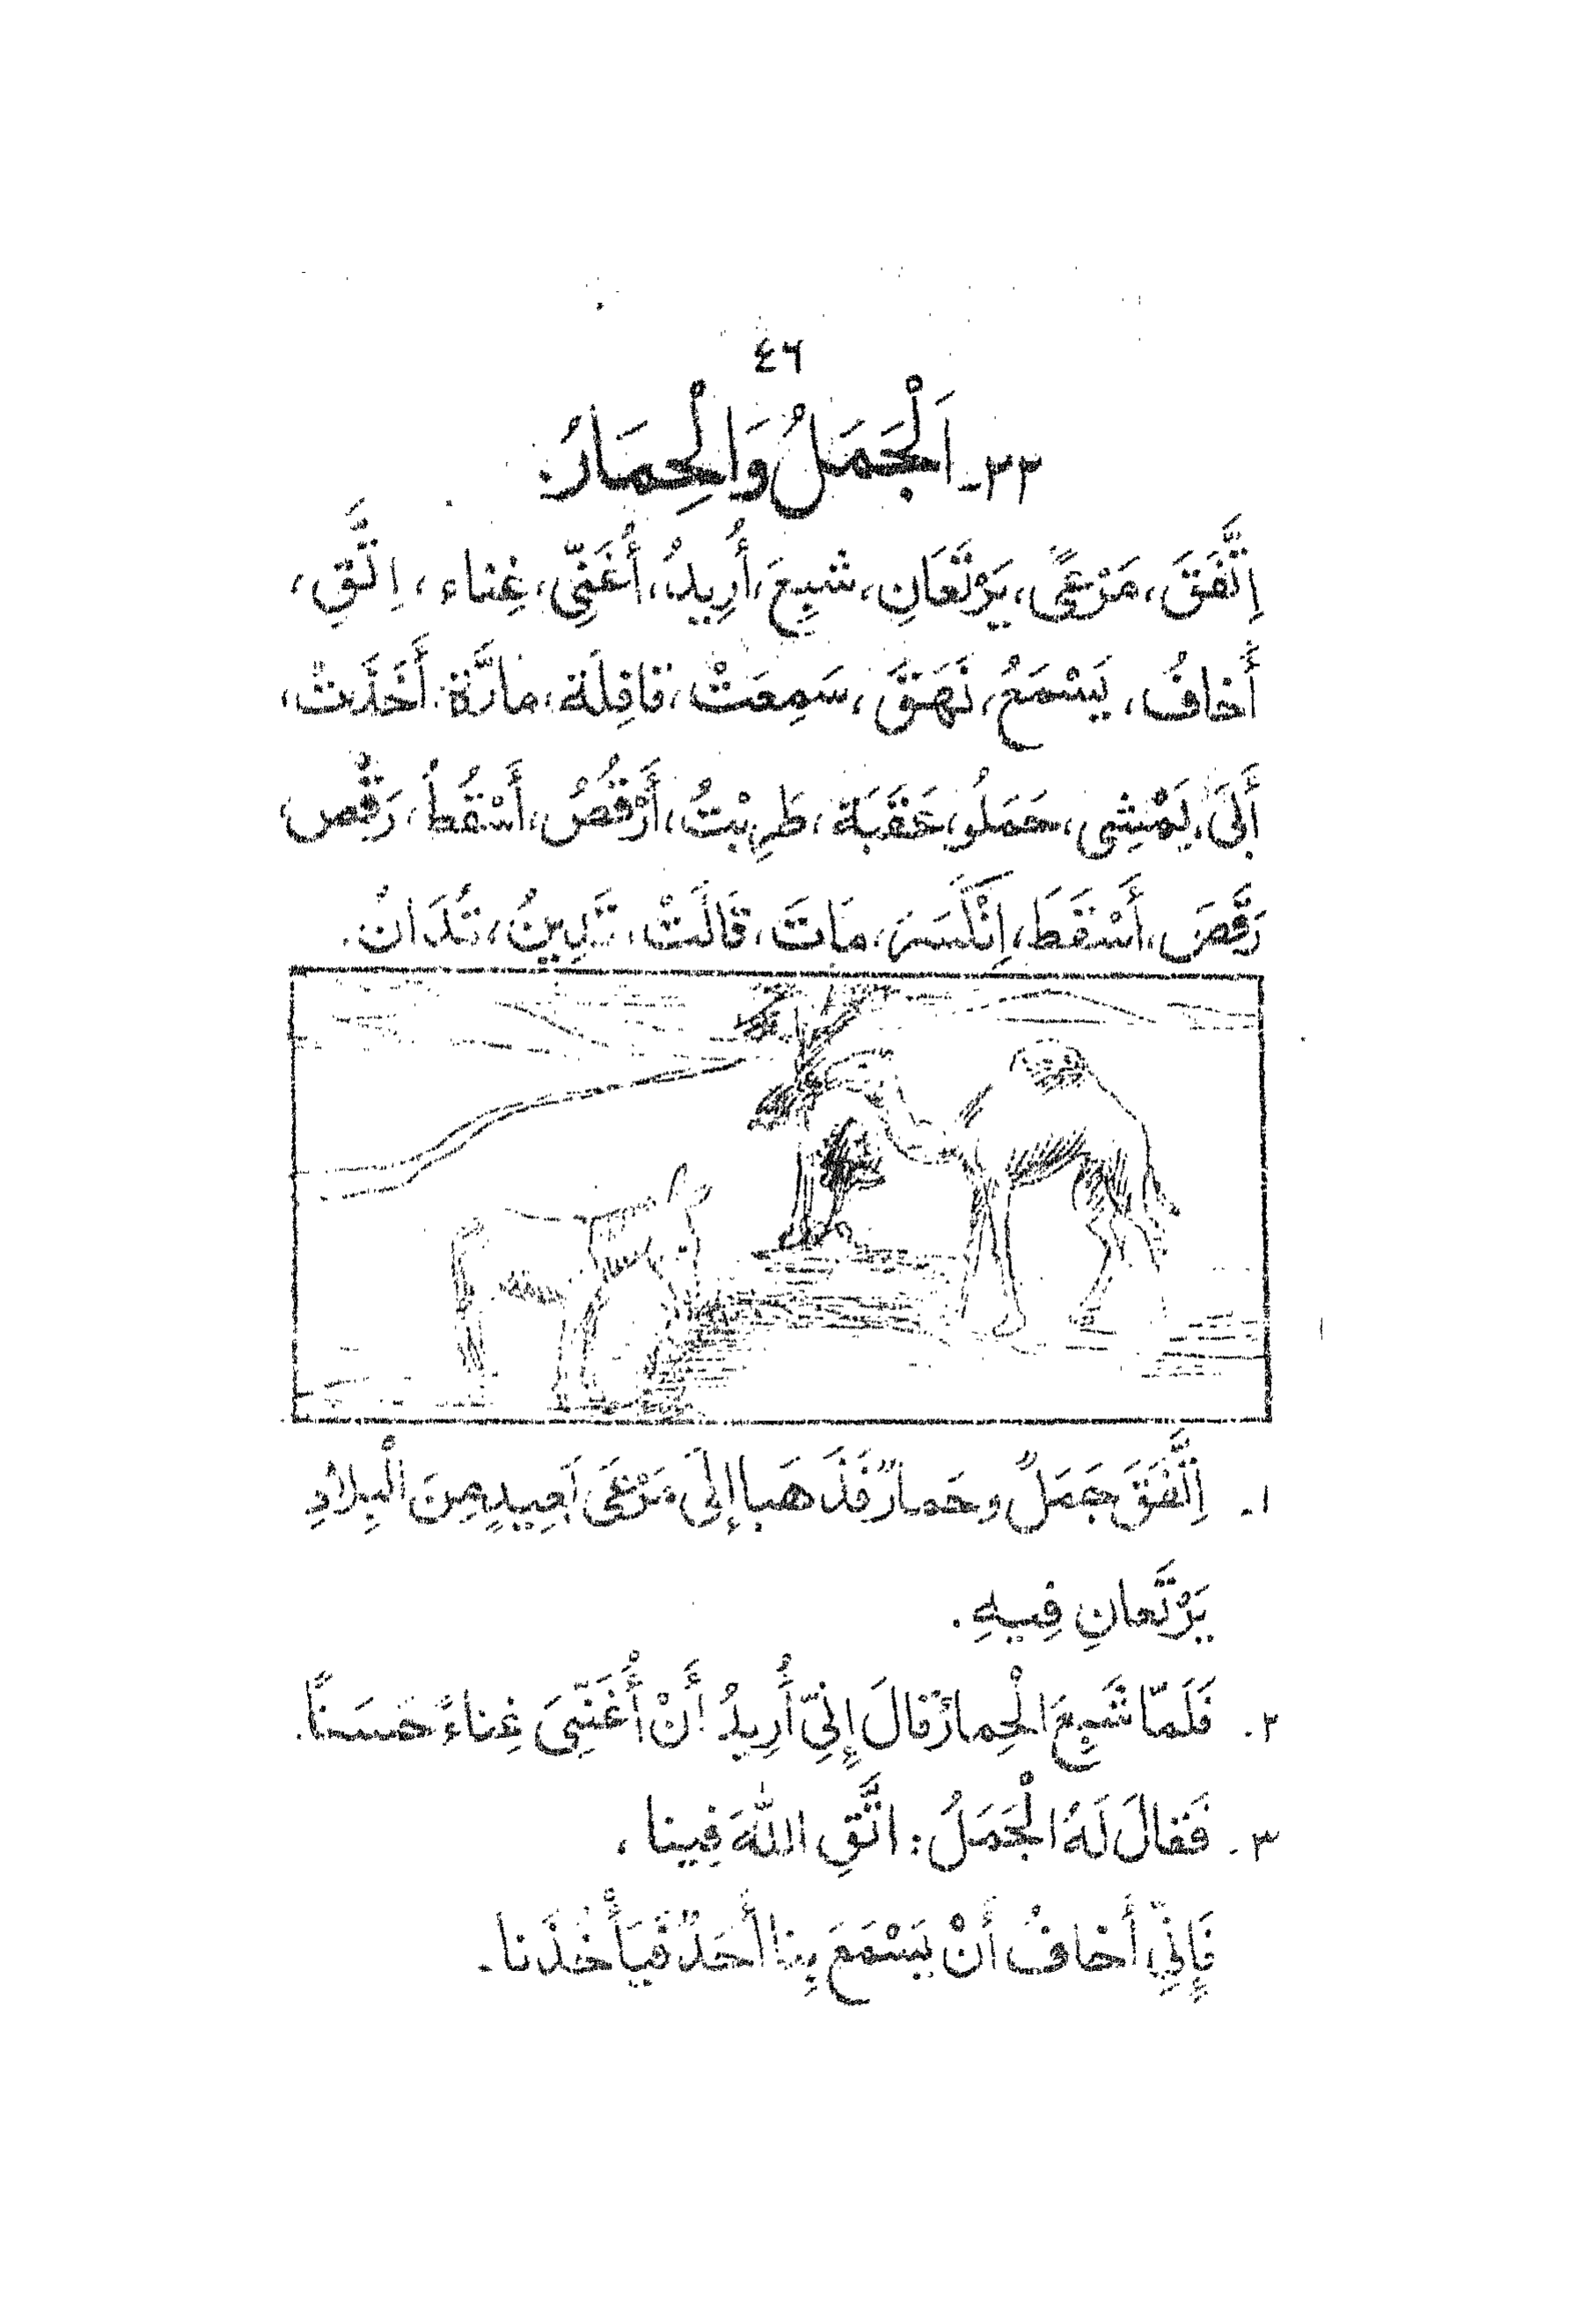 ٤٦
٢٣- اَلْجَمَلُ وَالْحِمَارُ
اِتَّفَقَ، مَرْعًى، يَرْتَعَانِ، شَبِعَ، أُرِيدُ، أُغَنِّي، غِناء، اِتَّقِ،
أَخافُ، يَسْمَعُ، نَهَقَ، سَمِعَتْ، قافِلَة، مارَّة، أَخَذَتْ،
أَبَى، يَمْشِى، حَمَلُو، عَقَبَة، طَرِبْتُ، أَرْقُصُ، أَسْقُطُ، رَقْص
رَقَصَ، أَسْقَطَ، اِنْكَسَرَ، مَاتَ، قَالَتْ، تَدِينُ، تُدَانُ.
١- اِتَّفَقَ جَمَلٌ وحَمارٌ فَذَهَبا إِلَى مَرْعَى بَعِيدٍ مِنَ الْبِلادِ
يَرْتَعانِ فِيهِ.
٢- فَلَمّا شَبِعَ الْحِمارُ قالَ إِنِّي أُرِيدُ أَنْ أُغَنِّيَ غِناءً حَسَنًا.
٣- فَقالَ لَهُ الْجَمَلُ: اتَّقِ اللّٰهَ فِينا،
فَإِنِّي أَخافُ أَنْ يَسْمَعَ بِنا أَحَدٌ فَيَأْخُذَنا.